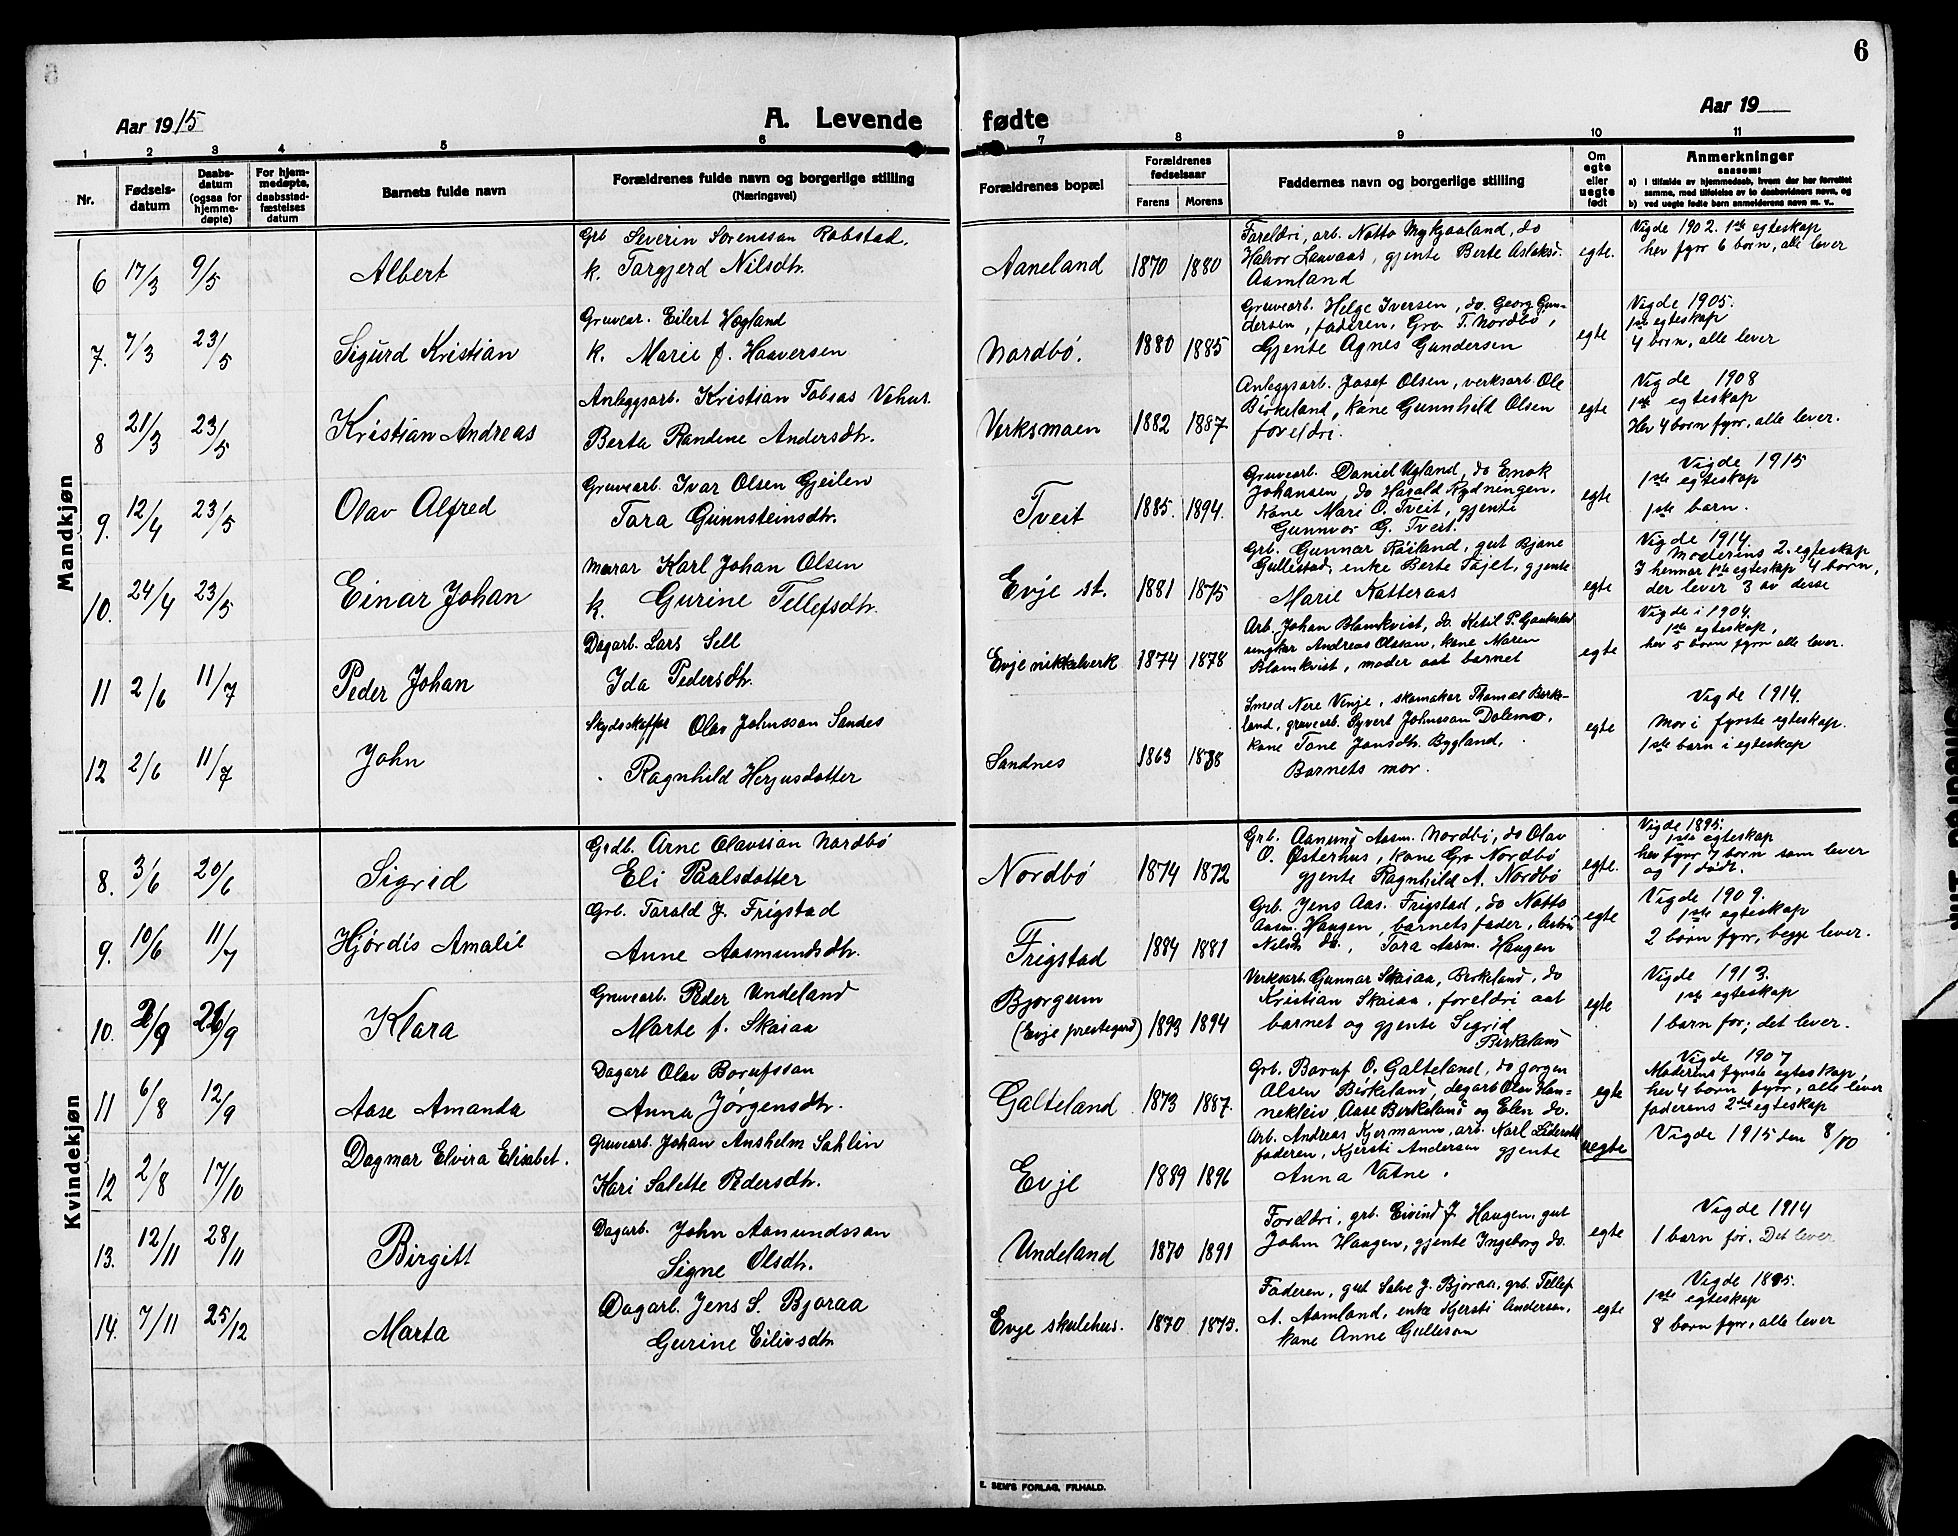 6
Aar 1915
A. Levende
fødte
Aar 19
1 2 3 4 5 6 7 8 9 10 11
Nr.
Fødsels-
datum
Daabs-
datum
(ogsaa for
hjemme-
døpte)
For hjem-
medøpte,
daabsstad-
fæstelses
datum
Barnets fulde navn
Forældrenes fulde navn og borgerlige stilling
(Næringsvei)
Forældrenes bopæl
Forældrenes
fødselsaar
Farens Morens
Faddernes navn og borgerlige stilling
Om
egte
eller
uegte
født
Anmerkninger
saasom:
a) I tilfælde av hjemmedaab, hvem der har forrettet
samme, med tilføielse av to daabsvidners navn, og
b) ved uegte fødte barn anmelderens navn m. v.
Mandkjøn
6 17/3 9/5 Albert
Grb Severin Sørensson Robstad.
k. Torgjerd Nilsdtr.
Aaneland 1870 1880
Foreldri, arb. Notto Mykjaaland, do
Halvor Lauvaas, gjente Berte Aslaksd.
Aamland
egte.
Vigde 1902. 1ste egteskap
her fyrr 6 born, alle lever
7. 7/3 23/5 Sigurd Kristian
Gruvear. Eilert Høgland
k. Marie f. Haaversen
Nordbø. 1880 1885
Gruvearb. Helge Iversen, do. Georg Gun-
dersen, faderen, Gro T. Nordbø,
Gjente Agnes Gundersen
egte
Vigde 1905.
1ste egteskap
4 born, alle lever
8 21/3 23/5 Kristian Andreas
Anleggsarb. Kristian Tobias Vehus.
Berta Randine Andersdtr.
Verksmoen 1882 1887.
Anleggsarb. Josef Olsen, verksarb Ole
Birkeland, kone Gunnhild Olsen
foreldri.
egte
Vigde 1908
1ste egteskap
Her 4 born fyrr, alle lever.
9. 12/4 23/5 Olav Alfred
Gruvearb. Ivar Olsen Gjeilen
Tora Gunnsteinsdtr.
Tveit 1885. 1894.
Gruvearb. Daniel Ugland, do Enok
Johansen, do Harald Rydningen,
kone Mari O. Tveit, gjente
Gunnvor G. Tveit.
egte
Vigde 1915
1ste egteskap
1ste barn.
10. 24/4 23/5 Einar Johan
Murar Karl Johan Olsen
k. Gurine Tellefsdtr.
Evje st. 1881 1875
Grb. Gunnar Røiland, gut Bjane
Gullestad, enke Berte Tajet, gjente
Marie Katteraas
egte
Vigde 1914.
Moderins 2. egteskap
I hennar 1ste egteskap 4 born,
der lever 3 av desse
11 2/6 11/7 Peder Johan
Dagarb. Lars Sell
Ida Pedersdtr.
Evje nikkelverk 1874 1878
Arb. Johan Blomkvist, do. Ketil P.
Andreas Olsson, kone Maren
Blomkvist, moder aat barnet
egte
Vigde i 1904.
1ste egteskap,
her 5 born fyrr alle lever.
12 2/6 11/7 John
Skydsskaffer Olav Johnsson Sandes
Ragnhild Herjusdotter
Sandnes 1863 1888
Smed Nere Vinje, skomakar Thomas Birke-
land, gruvearb. Syvert Johnsson Dolemo,
kone Tone Jonsdtr. Bygland,
Barnets mor.
egte
Vigde 1914.
Mor i fyrste egteskap.
1ste barn i egteskap
Kvindekjøn
8. 3/6 20/6 Sigrid
Grdb. Arne Olavssøn Nordbø
Eli Paalsdotter
Nordbø 1874 1872
Grb. Aanund Aasm. Nordbø, do Olav
O. Østerhus, kone Gro Nordbø
gjente Ragnhild A. Nordbø
egte.
Vigde 1895.
1ste egteskap
her fyrr 7 born som lever
og 1 dødt.
9. 10/6 11/7 Hjørdis Amalie
Grb. Torald J. Frigstad
Anne Aasmundsdtr.
Frigstad 1884 1881
Grb. Jens Aas. Frigstad, do Notto
Aasm. Haugen, barnets fader,
Nilsd. do., Tora Aasm. Haugen
egte
Vigde 1909.
1ste egteskap
2 born fyrr, begge lever.
10. 2/9 26/9 Klara
Gruvearb. Peder Undeland
Marte f. Skaiaa
Bjorgum
(Evje prestegard) 1893 1894
Verksarb. Gunnar Skaiaa, Birkeland, do
Kristian Skaiaa, foreldri aat
barnet og gjente Sigrid
Birkeland
egte
Vigde 1913.
1ste egteskap
1 barn før; det lever.
11 6/8 12/9 Aase Amanda
Dagarb Olav Borufsson
Anna Jørgensdtr.
Galteland 1873 1887.
Grb. Boruf O. Galteland, do Jorgen
Olsen Birkeland, dagarb Olav Han-
nekleiv, Aase Birkeland og Elen do.
egte
Vigde 1907
Moderens fyrste egteskap,
her 4 born fyrr, alle lever
faderens 2det egteskap
12 2/8 17/10 Dagmar Elvira Elisabet.
Gruvearb. Johan Anshelm Sahlin
Kari Salette Pedersdtr.
Evje 1889 1896
Arb. Andreas Kjermann, arb. Karl
faderen, Kjersti Andersen gjente
Anna Vatne.
uegte
Vigde 1915 den 8/10
13. 12/11 28/11 Birgitt
Dagarb. John Aanundsson
Signe Olsdtr.
Undeland 1870 1891
Foreldri, grb. Eivind J. Haugen, gut
John Haugen, gjente Ingeborg do.
egte
Vigde 1914
1 barn før. Det lever
14. 7/11 25/12 Marta
Dagarb. Jens S. Bjoraa
Gurine Eilivsdtr.
Evje skulehus. 1870 1873.
Faderen, gut Salve J. Bjoraa, grb. Tellef
A. Aamland, enke Kjersti Andersen,
kone Anne Gulleson
egte
Vigde 1895.
1ste egteskap
8 born fyrr, alle lever
E. SEM'S FORLAG, FR.HALD.